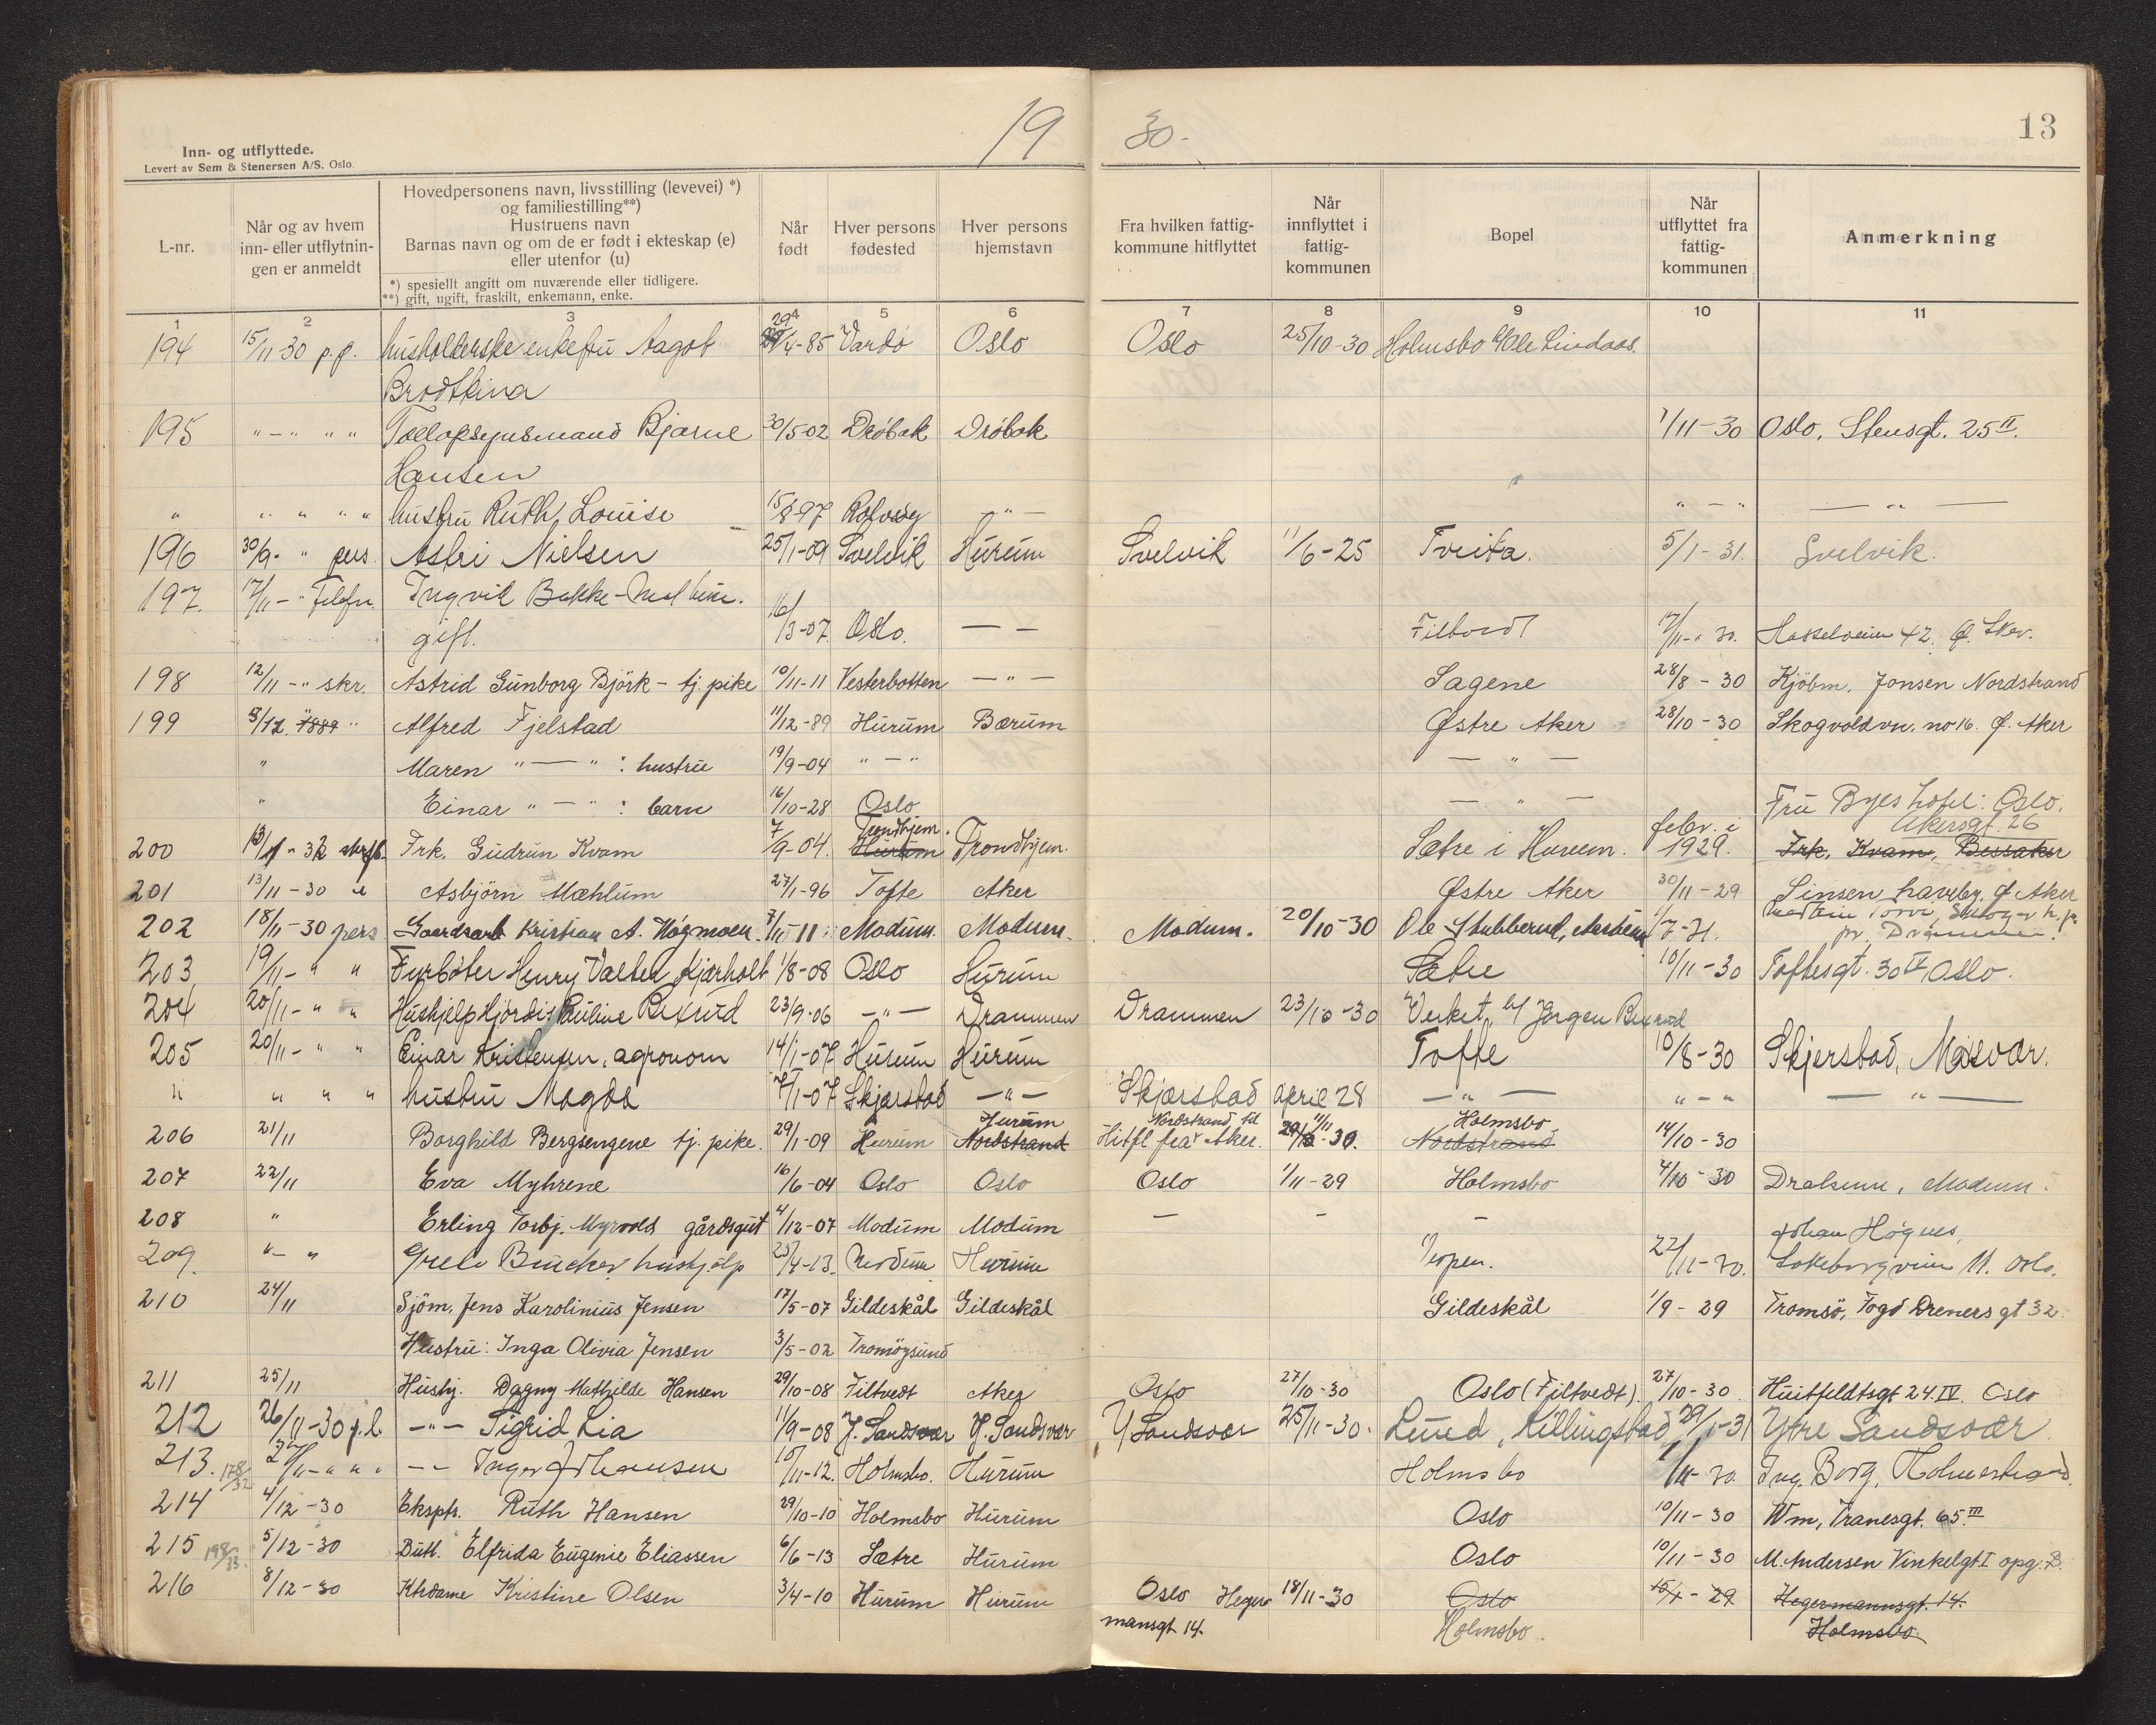 19 30.-
13
Inn- og utflyttede.
Levert av Sem & Stenersen A/S. Oslo.
L-nr.
Når og av hvem inn- eller utflytnin- gen er anmeldt
Hovedpersonens navn, livsstilling (levevei) *)
og familiestilling**)
Hustruens navn
Barnas navn og om de er født i ekteskap (e)
eller utenfor (u)
*) spesiellt angitt om nuværende eller tidligere.
**) gift, ugift, fraskilt, enkemann, enke.
Når født
Hver persons fødested
Hver persons hjemstavn
Fra hvilken fattig- kommune hitflyttet
Når innflyttet i fattig- kommunen
Bopel
Når utflyttet fra fattig- kommunen
Anmerkning
1 2 3 4 5 6 7 8 9 10 11
194 15/11-30 p.p. husholderske enkefru Aagot 29/4-85 Vardø Oslo Oslo 25/10-30 Holmsbo Ole Lindaas.
195 " - " " " Bjarne 30/5-02 Drøbak Drøbak 1/11-30 Oslo, Stensgt. 25 II.
Hansen
" " " " " hustru Ruth, Louise 15/8 97 - " - " - " - " -
196 30/9- " pers. Astri Nielsen 25/1-09 Svelvik Hurum Svelvik 11/6-25 Tveita. 5/1-31. Svelvik.
197. 17/11- " Telefn. Ingvil Bakke-
gift. 16/3-07 Oslo. — — Filtvedt 17/11-" 30. 42. Ø. Aker.
198 12/11-" skr. Astrid Gunborg Björk - tj. pike 10/11-11 Vesterbotten - " - Sagene 28/8-30 Kjöbm. Jonsen Nordstrand
199 5/12. 1889 " Alfred Fjelstad 11/12-89 Hurum Bærum Østre Aker 28/10-30 Skogvoldvn. no 16. Ø. Aker
" Maren " — " : hustru 19/9-04 " - " — " —
" Einar " — " : barn 16/10-28 Oslo — " — Fru Byes hotel: Oslo.
Trondhjem. febr. i Akersgt. 26
200 Frk. Gudrun Kvam 7/9-04. Hurum Trondhjem. Sætre i Hurum. 1929. Frk. Kvam, Bessaker
201 13/11-30 " Asbjörn Mæhlum 27/1-96 Tofte Aker Østre Aker 30/11-29 Sinsen haveby. Ø. Aker
202 18/11-30 pers Gaardsarb Kristian A. Høgmoen. 7/11-11. Modum. Modum. Modum. 20/10-30 Ole Stubberud, 1/7-31.
pr. Drammen.
203 19/11-" " Fyrbøter Henry Valter Kjærholt 1/8-08 Oslo Hurum Sætre 10/11-30 Toftesgt. 30 IV Oslo.
204 20/11-" " Hushjelp Hjørdis Pauline Bexrud 23/9-06 - " - Drammen Drammen 23/10-30 Verket, b/ Jørgen Bexrud
205 20/11-" " Einar Kristensen, agronom 14/1-07 Hurum Hurum Tofte 10/8-30 Skjerstad, Misvær.
" " " " hustru Magda 7/1-07 Skjærstad - " - Skjærstad april 28 - " - " - " — " —
Hurum Nordstrand til 11/11 Holmsbo.
206 21/11 Borghild Bergsengene tj. pike. 29/1-09 Hurum Nordstrand Hitfl fra Aker. 29/10-30. Nordstrand 14/10-30
207 22/11 Eva Myhrene 16/6-04 Oslo Oslo Oslo 1/11-29 Holmsbo 4/10-30 Modum.
208 " Erling Torbj. Myrvold gårdsgut 4/12-07 Modum Modum — - - Johan Høgnes,
209. " - " Grete Bücker hushjelp 25/4-13. Modum Hurum 22/11-30. 11. Oslo.
210 24/11 Sjöm. Jens Karolinius Jensen 17/5-07 Gildeskål Gildeskål Gildeskål 1/9-29 Tromsö, Fogd Dreiers gt 32.
Hustru: Inga Olivia Jensen 3/5-02 Tromöysund
211 25/11 Hushj. Dagny Mathilde Hansen 29/10-08 Filtvedt Aker Oslo 27/10-30 Oslo (Filtvedt). 27/10-30 Huitfeldtsgt 24. IV. Oslo
212 26/11-30 p.l. - " - Sigrid Lia 11/9-08 Y. Sandsvær Y. Sandsvær Y Sandsvær 25/11-30. Lund, Killingstad 29/1-31 Ytre Sandsvær.
213. 178/32 27/11-" " " - - Inger Johansen 15/11-12. Holmsbo. Hurum Holmsbo 1/11-30. Ing. Borg, Holmestrand.
214 4/12-30 Ekspt. Ruth Hansen 29/10-10 Holmsbo Hurum Oslo 10/11-30 Wm, Tranesgt. 65. III
215 198/33. 5/12-30 Butl. Elfrida Eugenie Eliassen 6/6-13 Sætre Hurum Oslo 10/11-30 M. Andersen Vinkelgt. I opg. B.
216 8/12-30 Kristine Olsen 3/4-10 Hurum Hurum Oslo Heger 18/11-30 Oslo 15/4-29 Hegermannsgt. 14.
mansgt 14. Holmsbo. Holmsbo